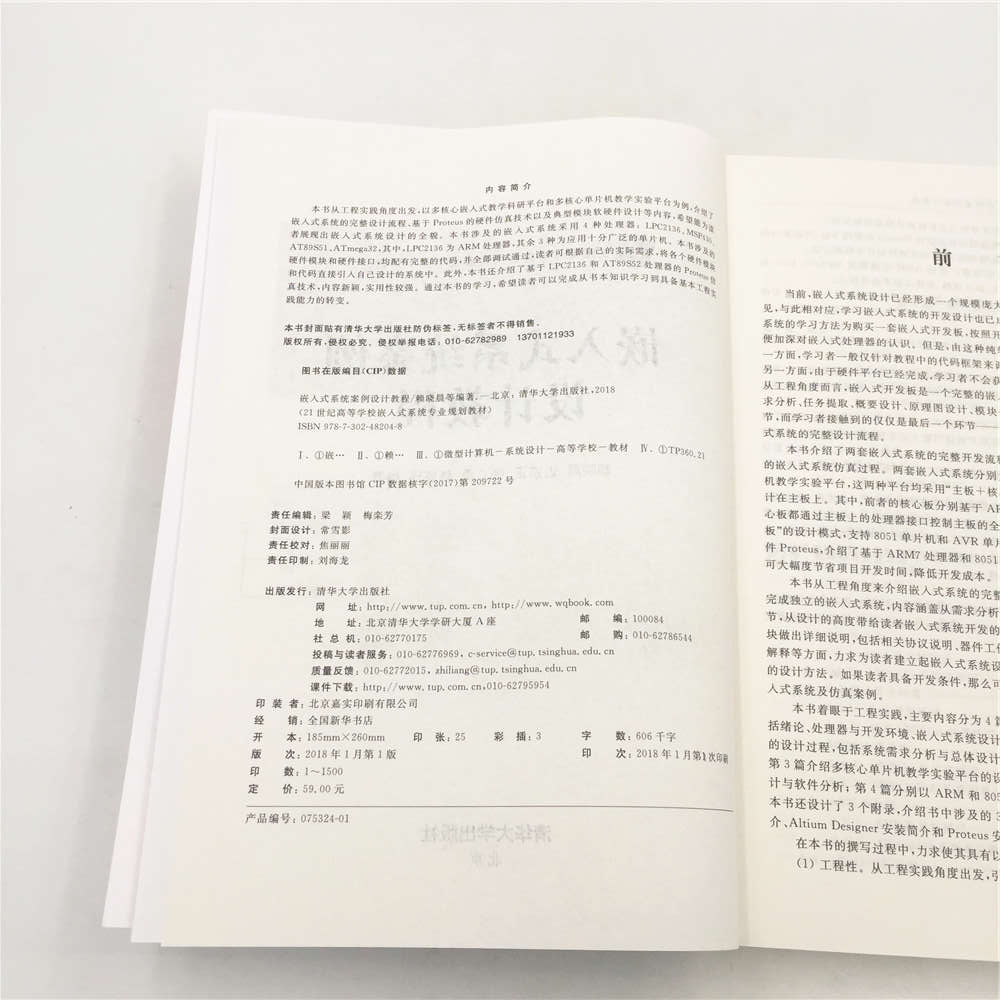 内容简介
本书从工程实践角度出发,以多核心嵌入式教学科研平台和多核心单片机教学实验平台为例,介绍了
嵌入式系统的完整设计流程、基于Proteus的硬件仿真技术以及典型模块软硬件设计等内容,希望能为读
者展现出嵌入式系统设计的全貌。本书涉及的嵌入式系统采用4种处理器:LPC2136、MSP430、
AT89S51、ATmega32,其中,LPC2136为ARM处理器,其余3种为应用十分广泛的单片机。本书涉及的
硬件模块和硬件接口,均配有完整的代码,并全部调试通过,读者可根据自己的实际需求,将各个硬件模块
和代码直接引入自己设计的系统中。此外,本书还介绍了基于LPC2136和AT89S52处理器的Proteus仿
真技术,内容新颖,实用性较强。通过本书的学习,希望读者可以完成从书本知识学习到具备基本工程实
践能力的转变。
本书封面贴有清华大学出版社防伪标签,无标签者不得销售。
版权所有,侵权必究。侵权举报电话:010-62782989 13701121933
图书在版编目(CIP)数据
嵌入式系统案例设计教程/赖晓晨等编著.—北京:清华大学出版社,2018
(21世纪高等学校嵌入式系统专业规划教材)
ISBN 978-7-302-48204-8
Ⅰ.①嵌… Ⅱ.①赖… Ⅲ.①微型计算机-系统设计-高等学校-教材 Ⅳ.①TP360.21
中国版本图书馆CIP数据核字(2017)第209722号
责任编辑:梁 颖 梅栾芳
封面设计:常雪影
责任校对:焦丽丽
责任印制:刘海龙
出版发行:清华大学出版社
网 址:http://www.tup.com.cn, http://www.wqbook.com
地 址:北京清华大学学研大厦A座 邮 编:100084
社 总 机:010-62770175 邮 购:010-62786544
投稿与读者服务:010-62776969, c-service@tup.tsinghua.edu.cn
质量反馈:010-62772015, zhiliang@tup.tsinghua.edu.cn
课件下载:http://www.tup.com.cn,010-62795954
印 装 者:北京嘉实印刷有限公司
经 销:全国新华书店
开 本:185mm×260mm 印 张:25 彩 插:3 字 数:606千字
版 次:2018年1月第1版 印 次:2018年1月第1次印刷
印 数:1~1500
定 价:59.00元
产品编号:075324-01
前
当前,嵌入式系统设计已经形成一个规模庞大
见,与此相对应,学习嵌入式系统的开发设计也已
系统的学习方法为购买一套嵌入式开发板,按照开
便加深对嵌入式处理器的认识。但是,由这种纯
一方面,学习者一般仅针对教程中的代码框架来
另一方面,由于硬件平台已经完成,学习者不会
从工程角度而言,嵌入式开发板是一个完整的嵌
求分析、任务提取、概要设计、原理图设计、模块
节,而学习者接触到的仅仅是最后一个环节——
式系统的完整设计流程。
本书介绍了两套嵌入式系统的完整开发流程
的嵌入式系统仿真过程。两套嵌入式系统分别
机教学实验平台,这两种平台均采用“主板+核
计在主板上。其中,前者的核心板分别基于AR
心板都通过主板上的处理器接口控制主板的全
板”的设计模式,支持8051单片机和AVR单片
件Proteus,介绍了基于ARM7处理器和8051
可大幅度节省项目开发时间,降低开发成本。
本书从工程角度来介绍嵌入式系统的完整
完成独立的嵌入式系统,内容涵盖从需求分析
节,从设计的高度带给读者嵌入式系统开发的
块做出详细说明,包括相关协议说明、器件工作
解释等方面,力求为读者建立起嵌入式系统设
的设计方法。如果读者具备开发条件,那么可
入式系统及仿真案例。
本书着眼于工程实践,主要内容分为4篇
括绪论、处理器与开发环境、嵌入式系统设计
的设计过程,包括系统需求分析与总体设计
第3篇介绍多核心单片机教学实验平台的设
计与软件分析;第4篇分别以ARM和805
本书还设计了3个附录,介绍书中涉及的3
介、Altium Designer安装简介和Proteus安
在本书的撰写过程中,力求使其具有以
(1) 工程性。从工程实践角度出发,引